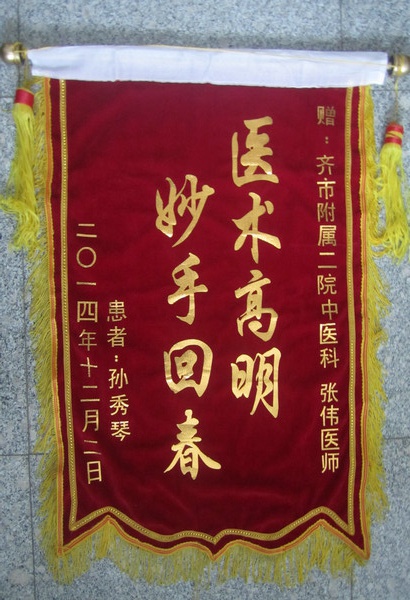 赠：齐市附属二院中医科 张伟医师
医术高明
妙手回春
患者：孙秀琴
二〇一四年十二月二日